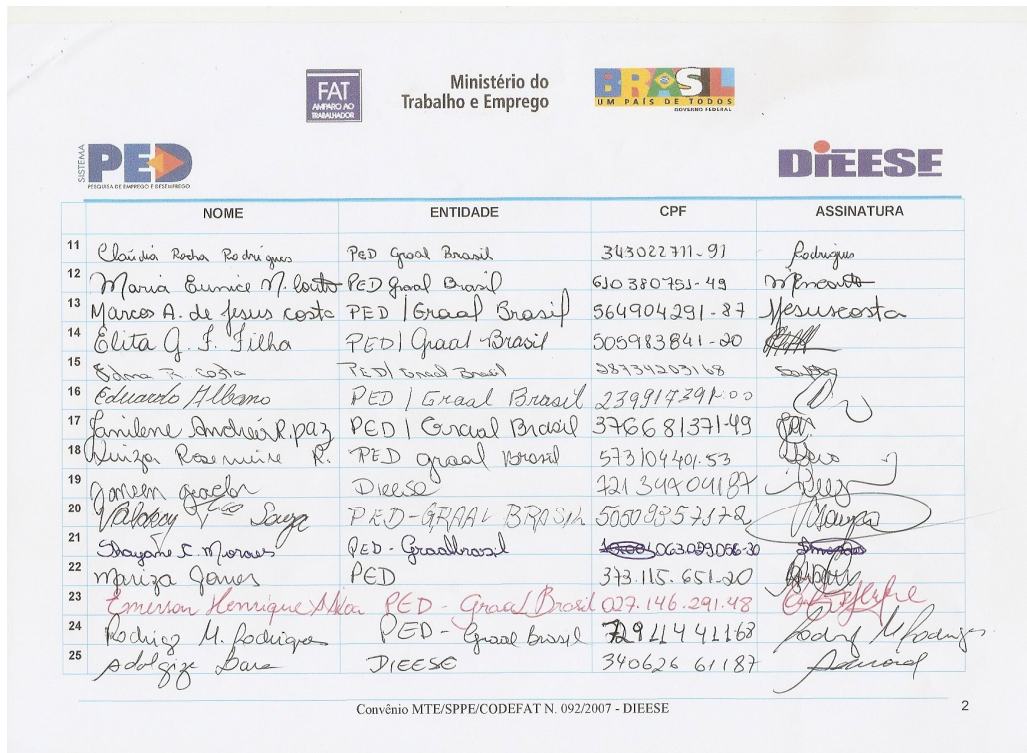 FAT
AMPARO AO
TRABALHADOR
Ministério do
Trabalho e Emprego
BRASIL
UM PAÍS DE TODOS
GOVERNO FEDERAL
SISTEMA
PED
PESQUISA DE EMPREGO E DESEMPREGO
DIEESE
NOME ENTIDADE CPF ASSINATURA
11 Claúdia Rocha Rodrigues PED Graal Brasil 343022711-91 Rodrigues
12 Maria Eunice M. Couto PED Graal Brasil 610380751-49
13 Marcos A. de Jesus costa PED | Graal Brasil 564904291-87 Mjesuscosta
14 Elita G. F. Filha PED | Graal Brasil 505983841-20
15 Edna costa PED | Graal Brasil 28734203168
16 Eduardo Albano PED | Graal Brasil 239917391-00
17 Janilene Andréia R. paz PED | Graal Brasil 376681371-49
18 Rosemeire R. PED graal Brasil 573104401.53
19 DIEESE 72134704187
20 Souza PED-GRAAL BRASIL 50509857172
21 C. Moraes PED-Graalbrasil 063029056-30
22 Mariza Gomes PED 373.115.651-20
23 Emerson Henrique PED - Graal Brasil 027.146.291.48
24 Rodrigo M. Rodrigues PED - Graal Brasil 72911441168 M Rodrigues
25 DIEESE 340626 61187
Convênio MTE/SPPE/CODEFAT N. 092/2007 - DIEESE
2